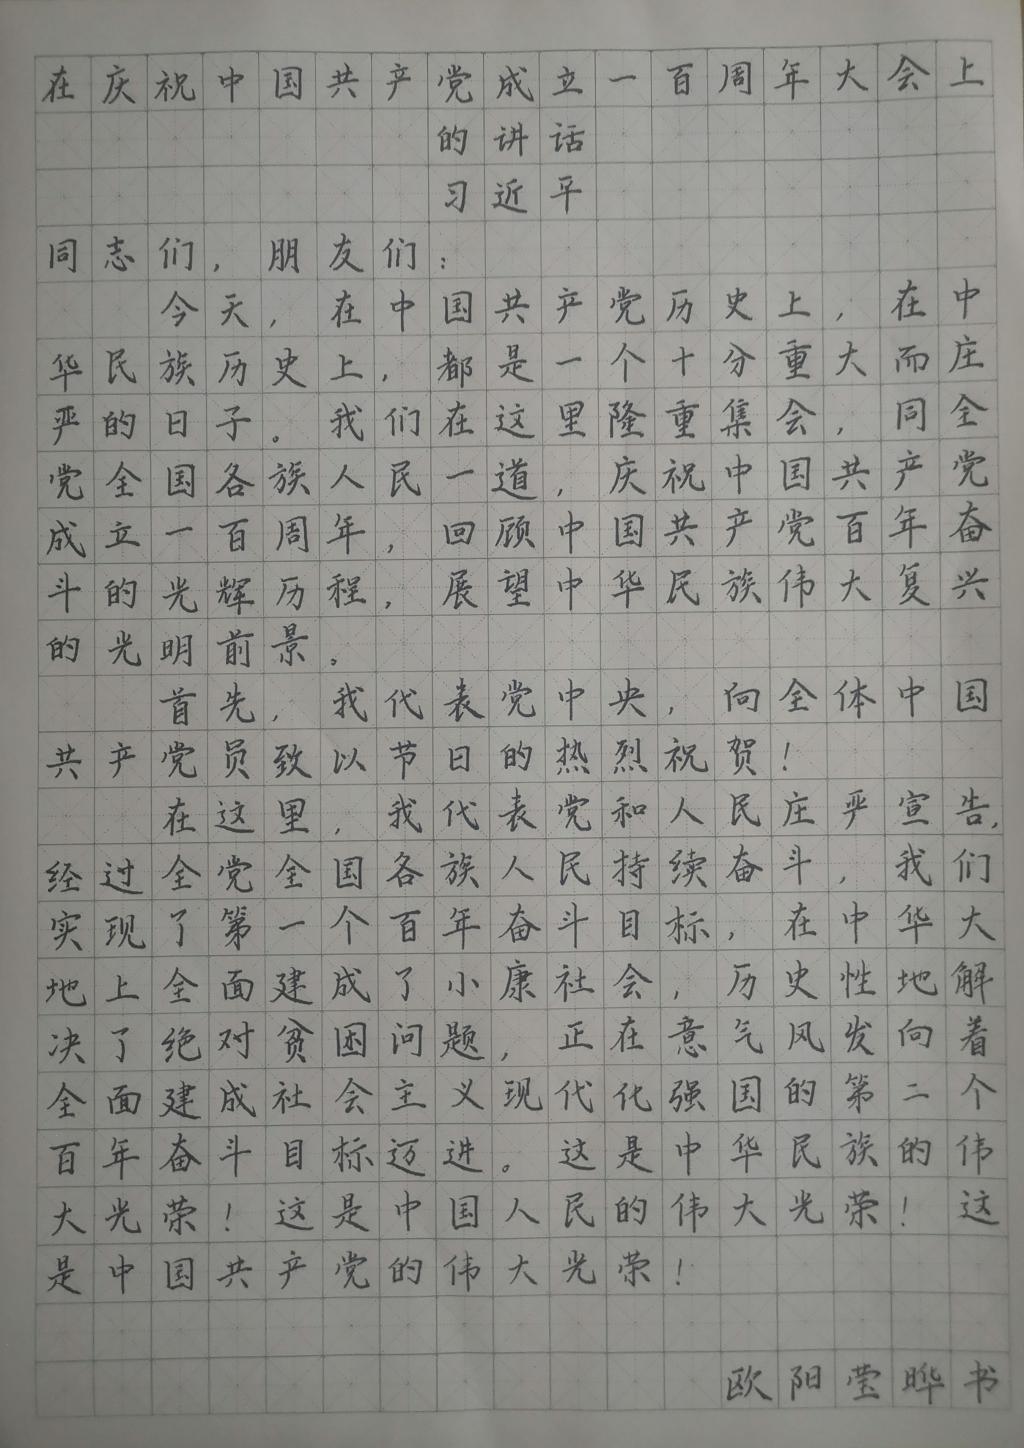 在庆祝中国共产党成立一百周年大会上
的讲话
习近平
同志们,朋友们:
今天,在中国共产党历史上,在中
华民族历史上,都是一个十分重大而庄
严的日子。我们在这里隆重集会,同全
党全国各族人民一道,庆祝中国共产党
成立一百周年,回顾中国共产党百年奋
斗的光辉历程,展望中华民族伟大复兴
的光明前景。
首先,我代表党中央,向全体中国
共产党员致以节日的热烈祝贺!
在这里,我代表党和人民庄严宣告,
经过全党全国各族人民持续奋斗,我们
实现了第一个百年奋斗目标,在中华大
地上全面建成了小康社会,历史性地解
决了绝对贫困问题,正在意气风发向着
全面建成社会主义现代化强国的第二个
百年奋斗目标迈进。这是中华民族的伟
大光荣!这是中国人民的伟大光荣!这
是中国共产党的伟大光荣!
欧阳莹晔书